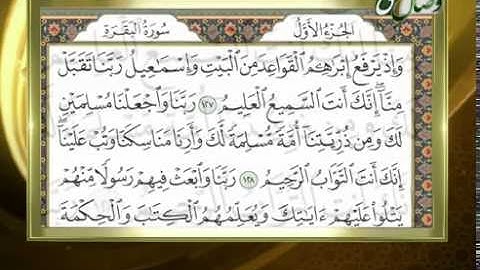 الجزء الأول
سورة البقرة
وَإِذْ يَرْفَعُ إِبْرَٰهِـۧمُ ٱلْقَوَاعِدَ مِنَ ٱلْبَيْتِ وَإِسْمَـٰعِيلُ رَبَّنَا تَقَبَّلْ
مِنَّآ ۖ إِنَّكَ أَنتَ ٱلسَّمِيعُ ٱلْعَلِيمُ ١٢٧ رَبَّنَا وَٱجْعَلْنَا مُسْلِمَيْنِ
لَكَ وَمِن ذُرِّيَّتِنَآ أُمَّةً مُّسْلِمَةً لَّكَ وَأَرِنَا مَنَاسِكَنَا وَتُبْ عَلَيْنَآ ۖ
إِنَّكَ أَنتَ ٱلتَّوَّابُ ٱلرَّحِيمُ ١٢٨ رَبَّنَا وَٱبْعَثْ فِيهِمْ رَسُولًا مِّنْهُمْ
يَتْلُوا۟ عَلَيْهِمْ ءَايَـٰتِكَ وَيُعَلِّمُهُمُ ٱلْكِتَـٰبَ وَٱلْحِكْمَةَ